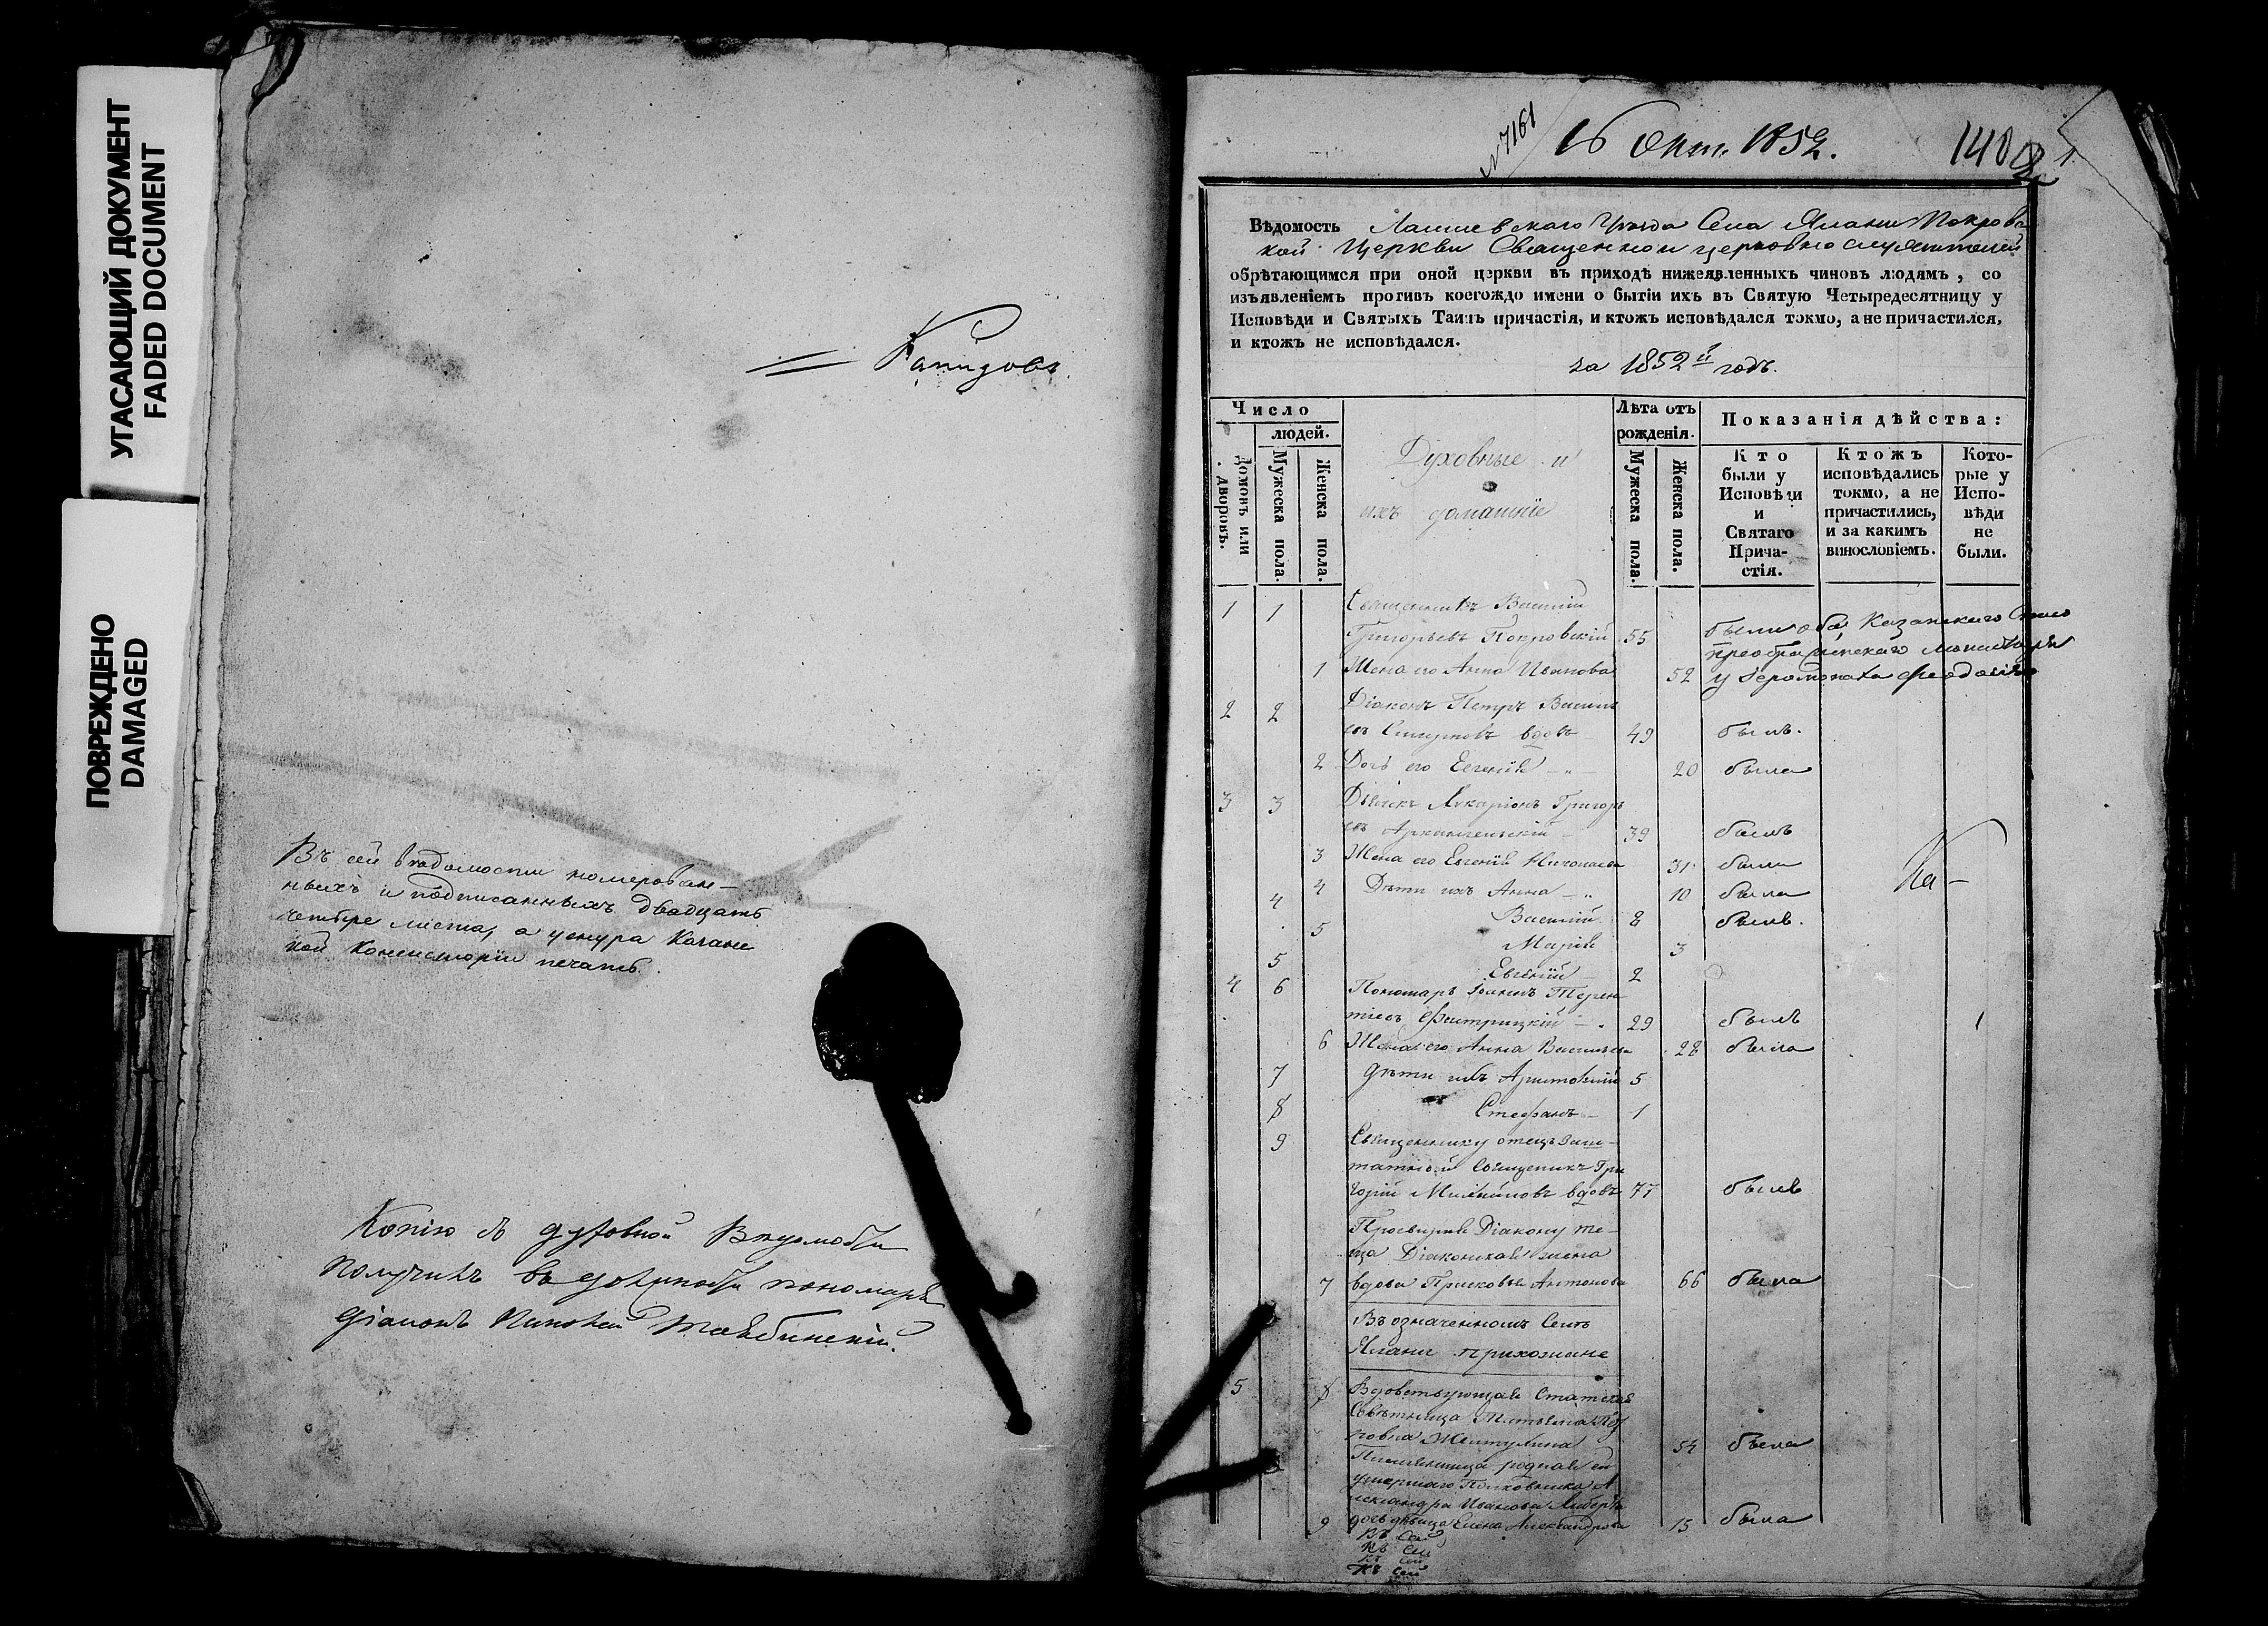 УГАСАЮЩИЙ ДОКУМЕНТ
FADED DOCUMENT
ПОВРЕЖДЕНО
DAMAGED
Въ сей вѣдомости номерован-
ныхъ и подписанныхъ двадцать
четыре листа, а у снура Казанс
кой Консисторіи печать.
Копію съ духовной Вѣдомости
получилъ въ должности пономаря
діаконъ
№ 7161
16 Окт. 1852.
140
Вѣдомость Лаишевскаго Уѣзда Села Покровс
кой Церкви Священно и церковно служителей
обрѣтающимся при оной церкви въ приходѣ нижеявленныхъ чиновъ людямъ, со
изъявленіемъ противъ коегождо имени о бытіи ихъ въ Святую Четыредесятницу у
Исповѣди и Святыхъ Таинъ причастія, и ктожъ исповѣдался токмо, а не причастился,
и ктожъ не исповѣдался.
за 1852й годъ.
Число
людей.
Домовъ или дворовъ.
Мужеска пола.
Женска пола.
Духовные и
ихъ домашніе
Лѣта отъ
рожденія.
Мужеска пола.
Женска пола.
Показанія дѣйства:
Кто
были у
Исповѣди
и
Святаго
Прича-
стія.
Ктожъ
исповѣдались
токмо, а не
причастились,
и за какимъ
винословіемъ.
Кото-
рые у
Испо-
вѣди
не
были.
1 1 Священникъ Василій
Григорьевъ Покровскій 55 были оба Казанскаго Спасо
преображенскаго монастыря
1 Жена его Анна Иванова 52 у Іеромонаха
2 2 Діаконъ Петръ Василь
евъ Смирновъ вдовъ 49 былъ.
2 Дочь его Евгенія 20 была
3 3 Дьячекъ Григорь
евъ Архангельскій 39 былъ
3 Жена его Евгенія Николаева 31 была
4 Дѣти ихъ Анна 10 была
4 Василій 8 былъ.
5 Марія 3
5 Евгеній 2
4 6 Пономарь Іоаннъ Терен-
тіевъ 29 былъ
6 Жена его Анна Васильева 28 была
7 Дѣти ихъ 5
8 Стефанъ 1
9 Священнику отецъ заш-
татной Священникъ Гри
горій Михайловъ вдовъ 77 былъ
Просвирня Діакону те-
ща Діаконская жена
7 вдова Прасковья Антонова 66 была
Въ означенномъ Селѣ
прихожане
5 8 Вдовствующая Статская
Совѣтница Татьяна
54 была
Племянница родная ей
умершаго Полковника А
лександра Иванова
9 дочь дѣвица Елена Александрова 15 была